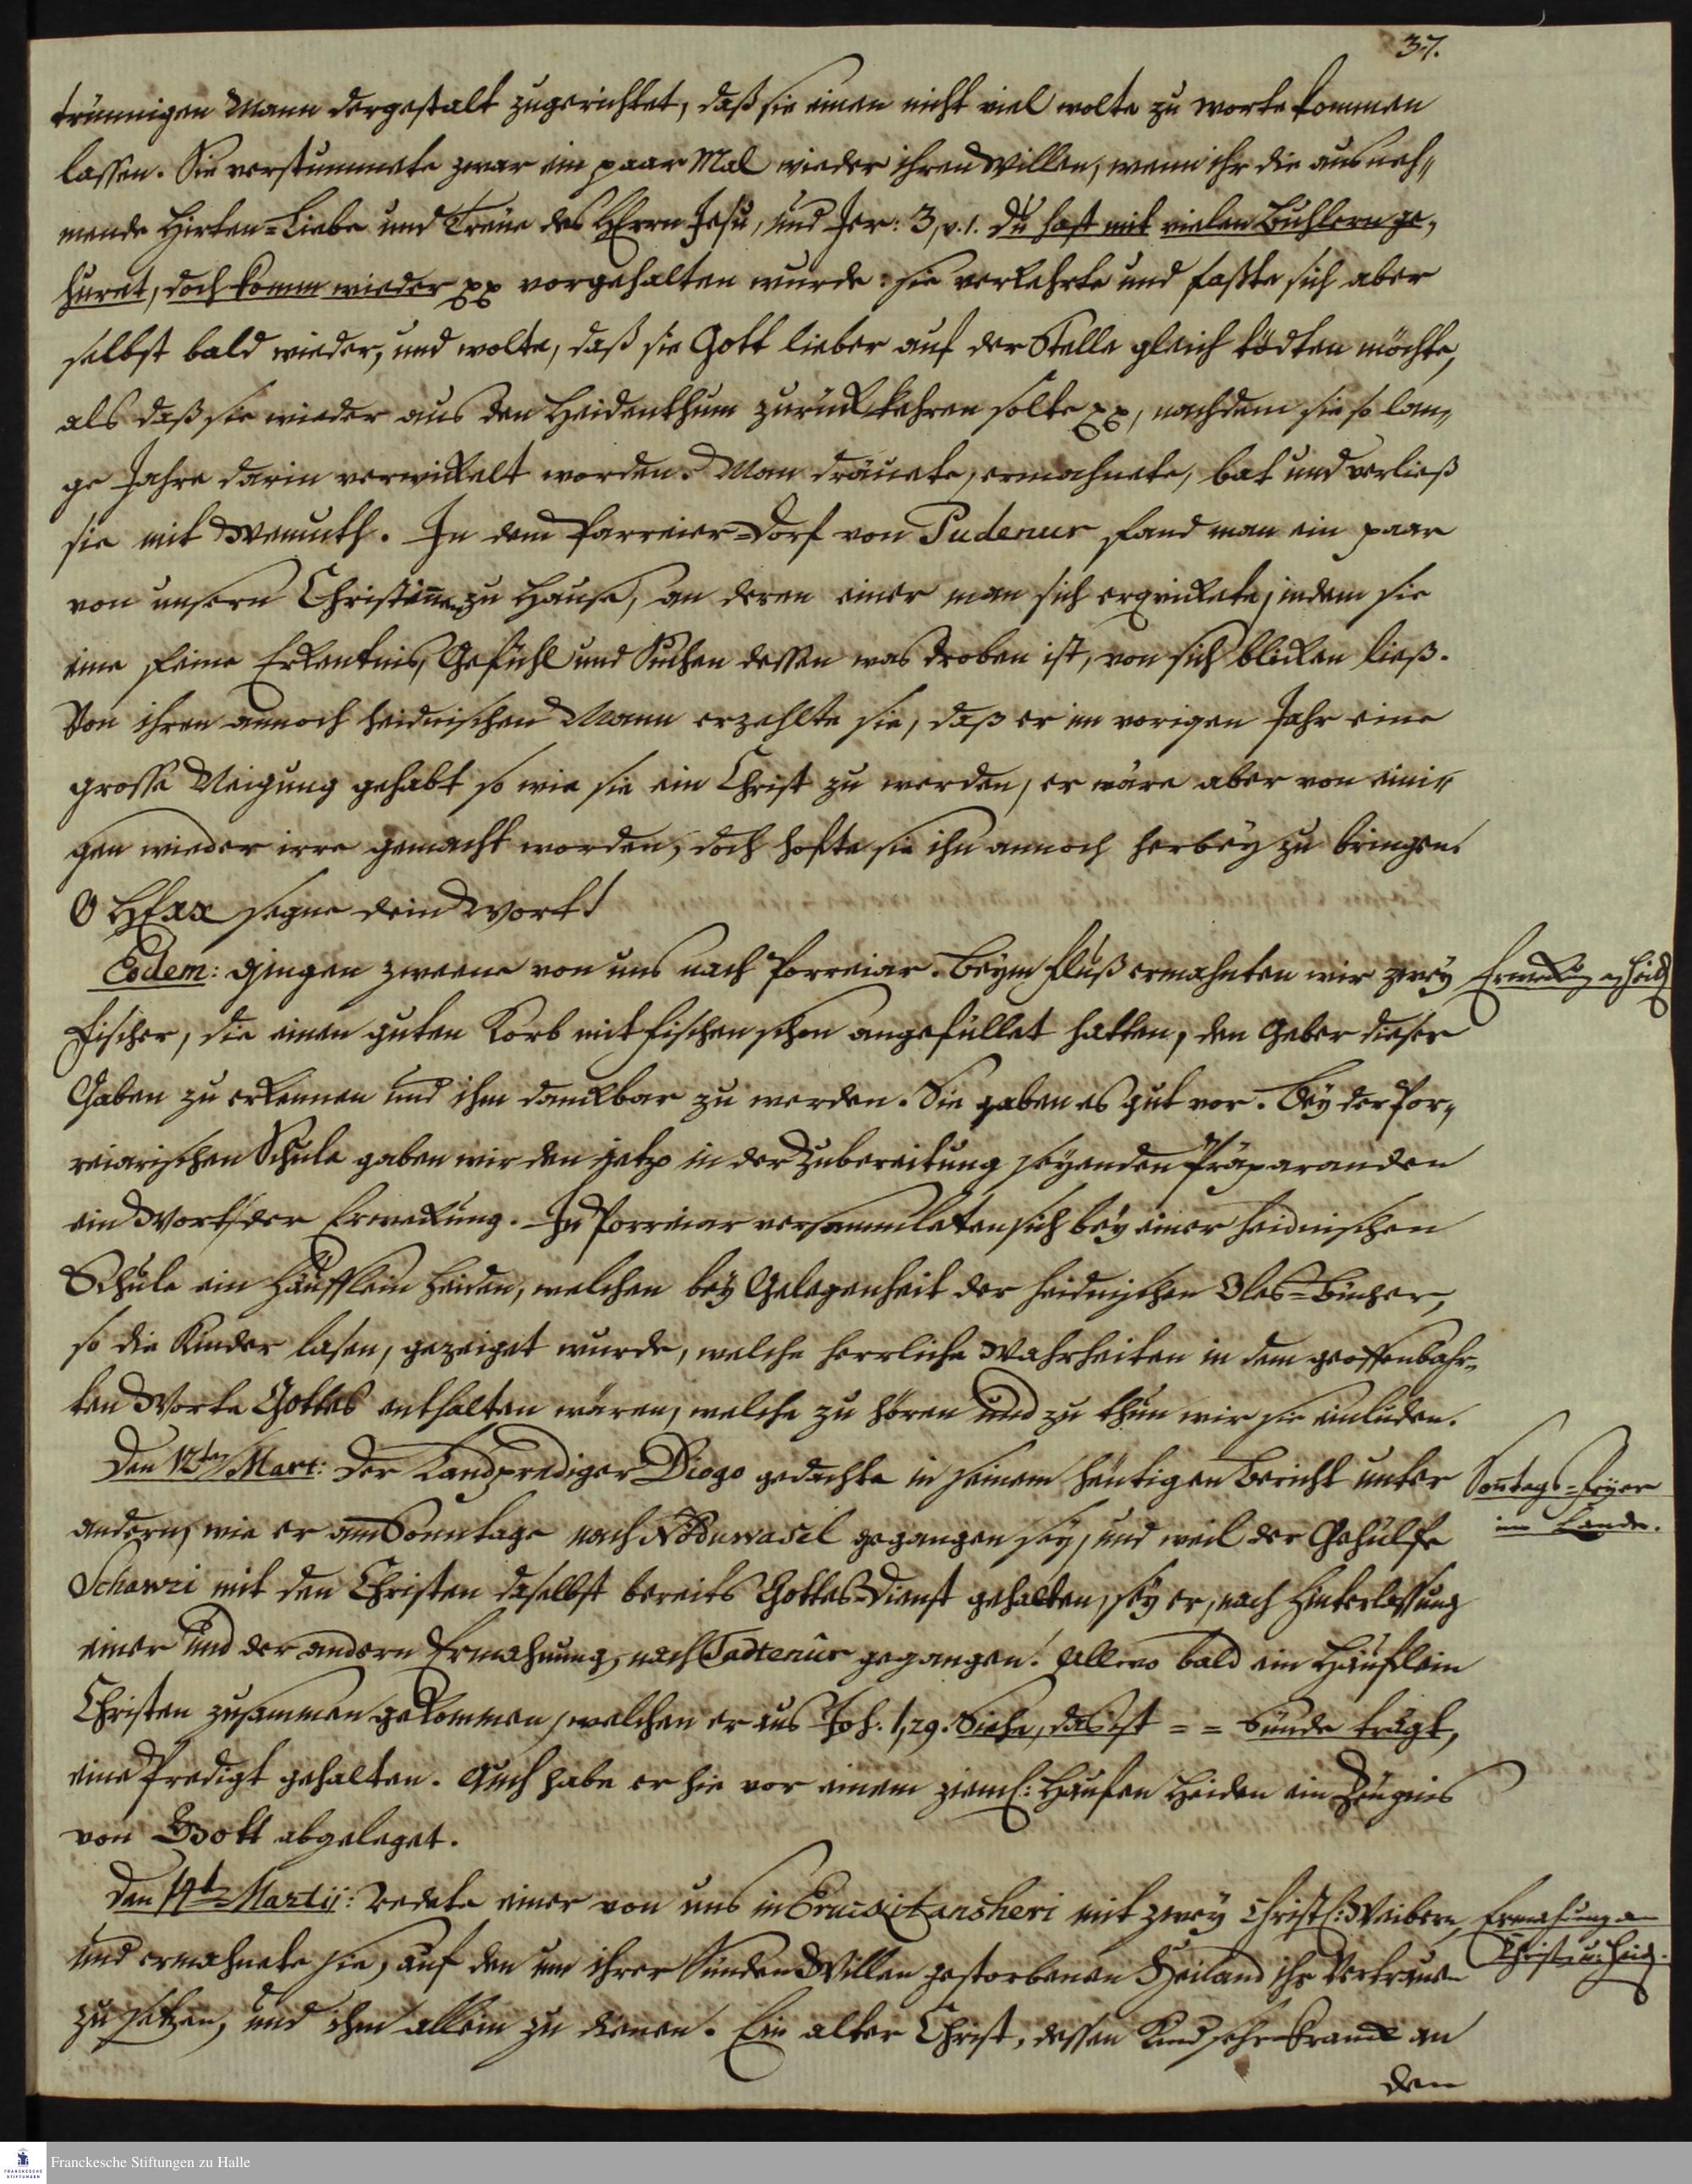 37.
trünnigen Mann dergestalt zugerichtet, daß sie einen nicht viel wolte zu worte kommen
lassen. Sie verstummete zwar ein paar Mal wieder ihren Willen, wenn ihr die ausneh„
mende Hirten=Liebe und Treüe des HErrn Jesu, und Jer: 3, v. 1. Du hast mit vielen Buhlern ge„
huret, doch komm wieder pp vorgehalten wurde: sie verkehrte und faßte sich aber
selbst bald wieder, und wolte, daß sie Gott lieber auf der Stelle gleich tödten möchte,
als daß sie wieder aus den Heidenthum zurück kehren solte pp, nachdem sie so lan„
ge Jahre darin verwickelt worden. Man dräuete, ermahnete, bat und verließ
sie mit Wemuth. In dem Parreier=Dorf von Pudenur fand man ein paar
von unsern Christinnen zu Hause, an deren einer man sich erqvickete, indem sie
eine feine Erkentnis, Gefühl und Suchen dessen was droben ist, von sich blicken ließ.
Von ihren annoch heidnischen Mann erzehlte sie, daß er im vorigen Jahr eine
grosse Neigung gehabt so wie sie ein Christ zu werden, er wäre aber von eini„
gen wieder irre gemacht worden, doch hofte sie ihn annoch herbey zu bringen.
O HErr segne dein Wort!
Eodem: gingen zweene von uns nach Porreiar. Beym Fluß ermahnten wir zwey
Erweckung an Heid
Fischer, die einen guten Korb mit Fischen schon angefüllet hatten, den Geber dieser
Gaben zu erkennen und ihm danckbar zu werden. Sie gaben es gut vor. Bey der Por„
reiarischen Schule gaben wir den jetzo in der Zubereitung seyenden Präparanden
ein Wort der Erweckung. In Porreiar versammleten sich bey einer heidnischen
Schule ein Häufflein Heiden, welchen bey Gelegenheit der heidnischen Oles=Bücher,
so die Kinder lasen, gezeiget wurde, welche herrliche Wahrheiten in dem geoffenbahr„
ten Worte Gottes enthalten wären, welche zu hören und zu thun wir sie einluden.
Den 12ten Mart: Der Landprediger Diogo gedachte in seinem heutigen Bericht unter
Sonntags=Feyer
im Lande.
andern, wie er am Sonntage nach gegangen sey, und weil der Gehülfe
Schawri mit den Christen daselbst bereits Gottes=Dienst gehalten, sey er, nach Hinterlassung
einer und der andern Ermahnung, nach gegangen. Allwo bald ein Häuflein
Christen zusammen gekommen, welchen er aus Joh. 1, 29. Siehe, das ist = = Sünde trägt,
eine Predigt gehalten. Auch habe er hie vor einem zieml: Haufen Heiden ein Zeugnis
von Gott abgeleget.
Den Martii: Redete einer von uns in mit zwey Christl: Weibern,
Ermahnung an
Christ. u. Heid.
und ermahnete sie, auf den um ihrer Sünden Willen gestorbenen Heiland ihr Vertrauen
zu setzen, und ihm allein zu dienen. Ein alter Christ, dessen Kind sehr kranck an
den
Franckesche Stiftungen zu Halle